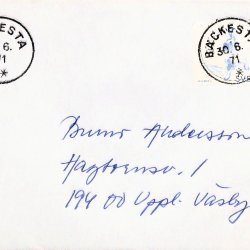 KESTA
6.
71
BÄCKESTA
30.6.
71
Bruno Andersson
Hagtornsv. 1
194 00 Uppl. Väsby